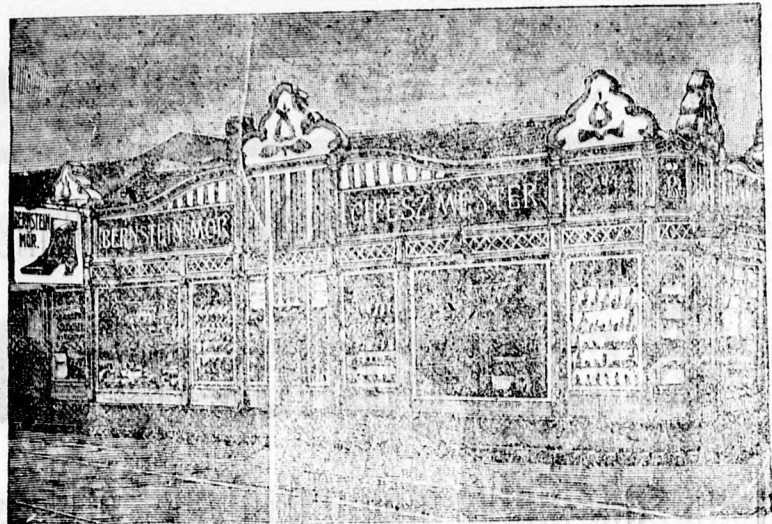 BERNSTEIN
MÓR.
BERNSTEIN MÓR
CIPÉSZ MESTER